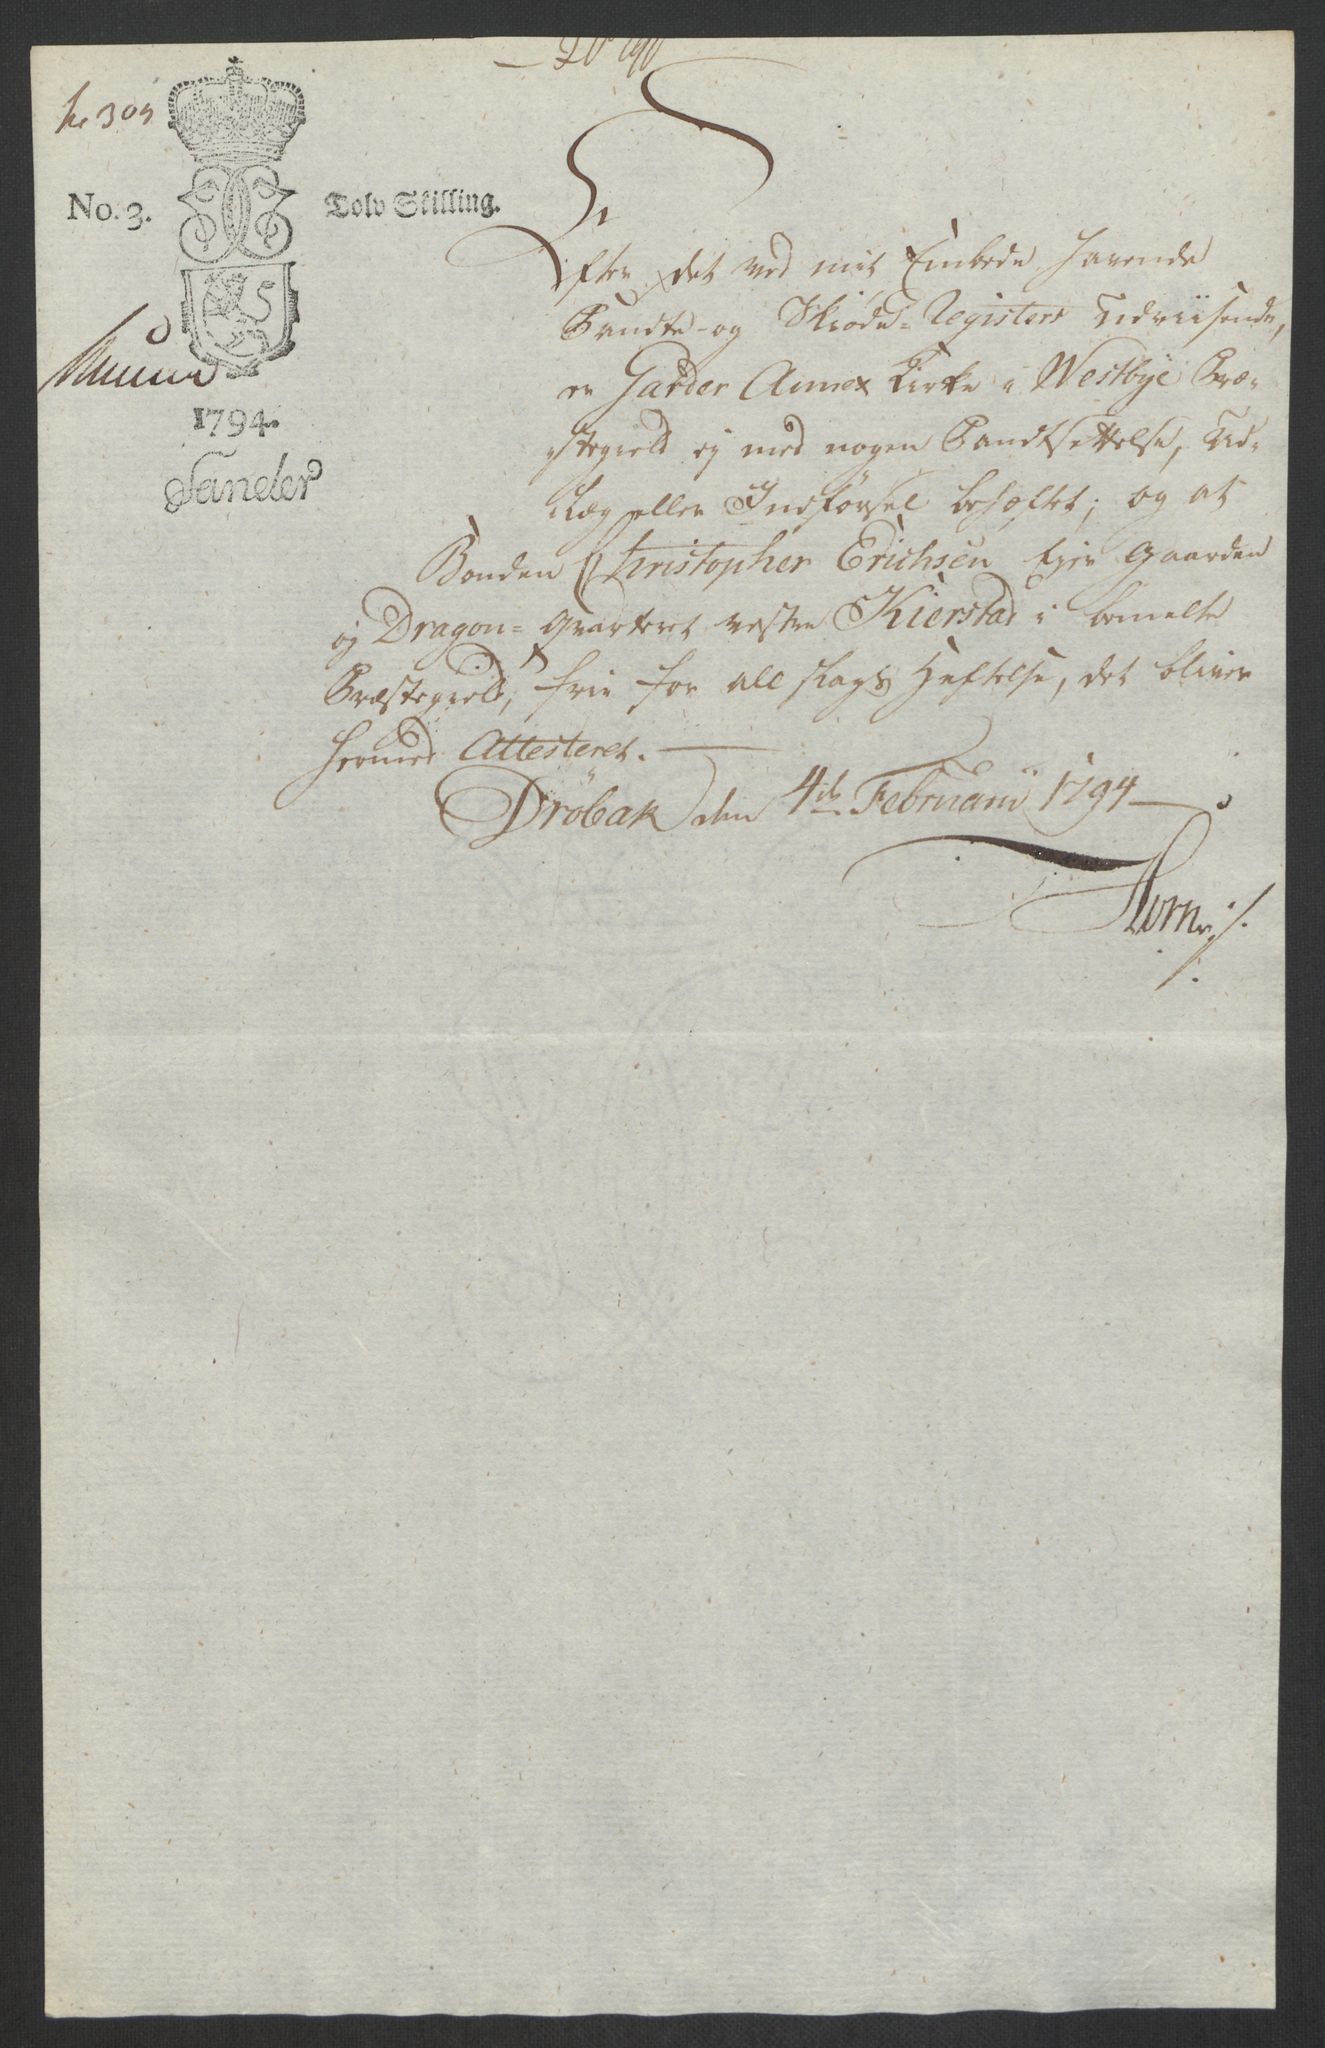 No. 3.
Tolv Skilling.
1794.
Sander
Efter det ved mit Embede havende
Pandte- og Skiøde-Registers Udviisende,
er Garder Annex Kirke i Westbye Præ-
stegield ej med nogen Pandtsettelse, Ud-
læg eller Indførsel behæftet; og at
Bonden Christopher Erichsen Ejer Gaarden
og Dragon-Qvarteret vestre Kierstad i bemelte
Præstegield, frie for all slags Heftelse, det bliver
hermed Attesteret.
Dröbak den 4de Februarii 1794
Horn